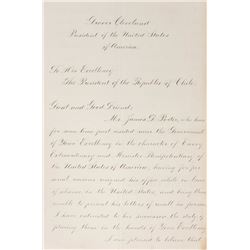 Grover Cleveland
President of the United States
of America.
To His Excellency
The President of the Republic of Chile.
Great and Good Friend:
Mr. James D. Porter, who has
for some time past resided near the Government
of Your Excellency in the character of Envoy
Extraordinary and Minister Plenipotentiary of the
United States of America, having for per-
sonal reasons resigned his office while on leave
of absence in the United States, and being thus
unable to present his letters of recall in person
I have entrusted to his successor the duty of
placing them in the hands of Your Excellency
I am pleased to believe that